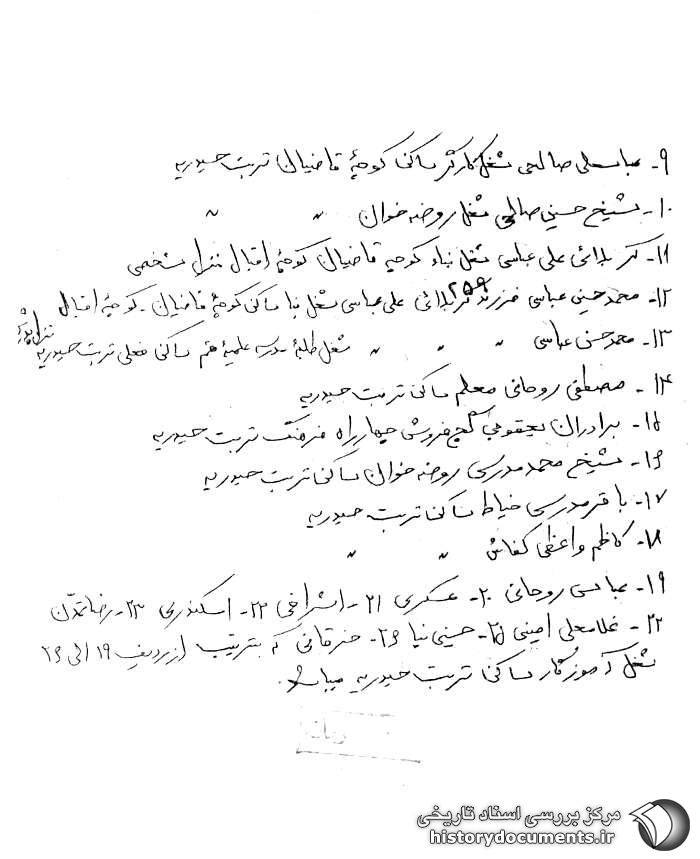 ۹- عباسعلی صالحی شغل کارگر ساکن کوچهٔ قاضیان تربت حیدریه
۱۰- شیخ حسین صالحی شغل روضه خوان " "
۱۱- کربلائی علی عباسی شغل بناء کوچه قاضیان کوچهٔ اقبال منزل شخصی
۱۲- محمدحسین عباسی فرزند کربلائی علی عباسی شغل بنا ساکن کوچهٔ قاضیان - کوچهٔ اقبال منزل
۲۵۹
۱۳- محمدحسن عباسی " " " شغل طلبهٔ مدرسه علمیهٔ قم ساکن فعلی تربت حیدریه
۱۴- مصطفی روحانی معلم ساکن تربت حیدریه
۱۵- برادران یعقوبی گچ فروش چهارراه فرهنگ تربت حیدریه
۱۶- شیخ محمد مدرسی روضه خوان ساکن تربت حیدریه
۱۷- باقر مدرسی خیاط ساکن تربت حیدریه
۱۸- کاظم واعظی کفاش " "
۱۹- عباس روحانی ۲۰- عسکری ۲۱- اشراقی ۲۲- اسکندری ۲۳- رضا تمدن
۲۴- غلامعلی امینی ۲۵- حسینی نیا ۲۶- خرقانی که بترتیب از ردیف ۱۹ الی ۲۶
شغل آموزگار ساکن تربت حیدریه میباشد.
مرکز بررسی اسناد تاریخی
historydocuments.ir